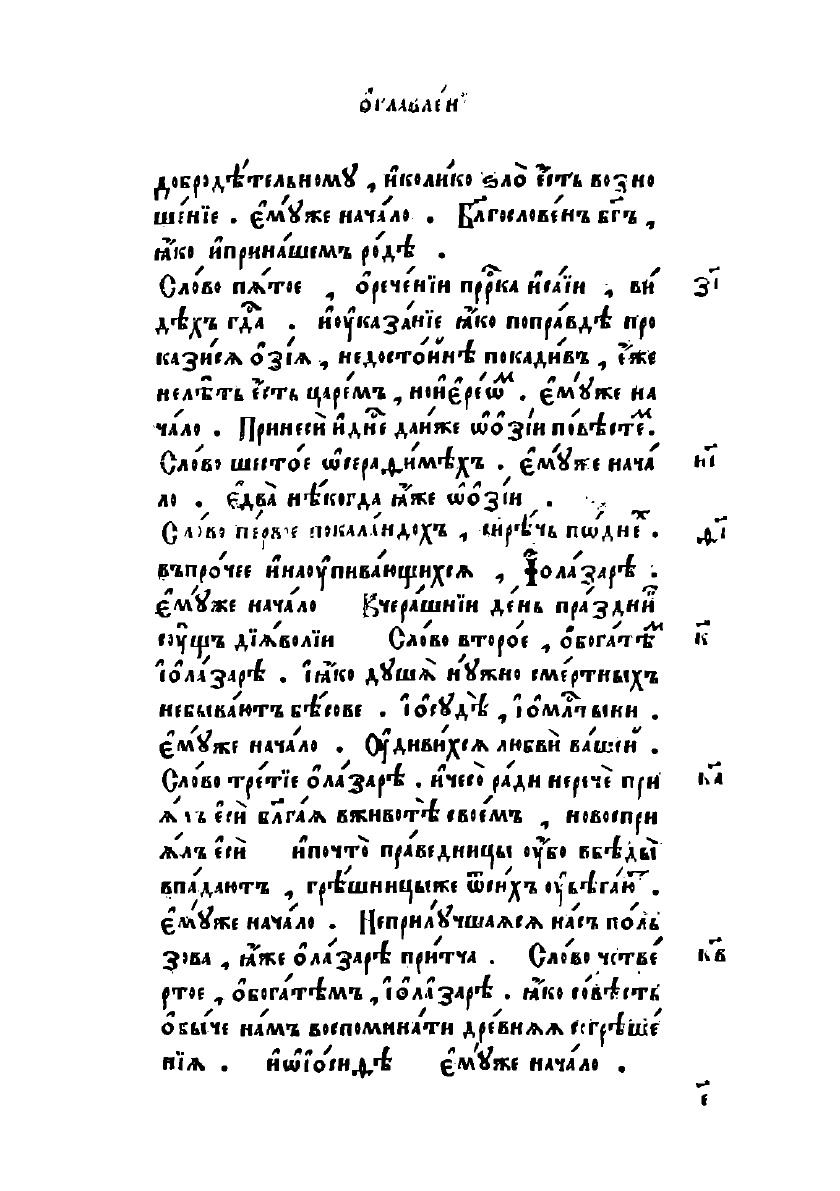 ѡ҆главле́нїе
добродѣ́тельному , и҆коли́ко ѕло̀ є҆́сть возно
ше́нїе . є҆му́же нача́ло . Бл҃гослове́нъ бг҃ъ ,
ꙗ҆́ко и҆прина́шемъ ро́дѣ .
Сло́во пѧ́тое , ѻ҆рече́нїи прⷪ҇рка и҆са́їи , ви́ з҃і
дѣхъ гдⷭ҇а . и҆ᲂу҆каза́нїе ꙗ҆́ко попра́вдѣ про
кази́сѧ ѻ҆зі́ѧ , недосто́йнѣ покади́въ , є҆́же
нелѣ́ть є҆́сть царе́мъ , но и҆є҆ре́ѡⷨ . є҆му́же на
ча́ло . Принеси́ и҆дне́ дани́же ѡ҆ѻ҆зі́и по́вѣстеⷨ .
Сло́во шесто́е ѡ҆серафи́мѣхъ . є҆му́же нача́ и҃і
ло . є҆два̀ нѣ́когда ꙗ҆́же ѡ҆ѻ҆зі́и .
Сло́во пе́рвое покала́ндохъ , си́рѣчь по ѡ҆́днеⷯ . ѳ҃і
въпро́чее и҆наᲂу҆пива́ющихсѧ , і҆ѻ҆ла́зарѣ .
є҆му́же нача́ло Вчера́шнїи де́нь пра́здниⷦ҇
сꙋ́щъ дїѧ́волїи Сло́во второ́е , ѻ҆бога́тѣⷨ к҃
і҆ѻ҆ла́зарѣ . і҆ꙗ҆́ко дꙋша̀ нꙋ́жно сме́ртныхъ
небыва́ютъ бѣ́сове . і҆ѻ҆сꙋдѣ̀ , і҆ѻ҆млⷭ҇тыни .
є҆му́же нача́ло . Оу҆диви́хсѧ любвѝ ва́шей .
Сло́во тре́тїе ѻ҆ла́зарѣ . и҆чесо̀ ра́ди неречѐ при к҃а
ѧ́тъ є҆сѝ бл҃га́ѧ вживотѣ̀ свое́мъ , новоспри
ѧ́лъ є҆сѝ и҆почто̀ пра́ведницы ᲂу҆́бо вбѣды̀
впа́даютъ , грѣ́шницыже ѿси́хъ ᲂу҆бѣга́юⷮ .
є҆му́же нача́ло . Неприлꙋ́чшаѧсѧ на́съ по́ль
зова , ꙗ҆́же ѻ҆ла́зарѣ при́тча . Сло́во четве́ к҃в
ртое , ѻ҆бога́тѣмъ , і҆ѻ҆ла́зарѣ . ꙗ҆́ко со́вѣсть
ѻ҆бы́че на́мъ воспомина́ти дре́внѧѧ согрѣше́
нїѧ . и҆ѡ҆і҆ѻ́сифѣ є҆му́же нача́ло .
є҃